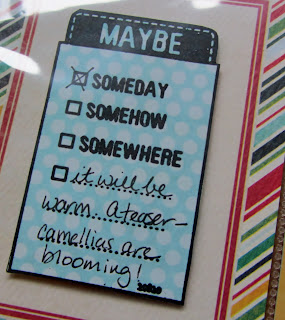 MAYBE
SOMEDAY
SOMEHOW
SOMEWHERE
it will be
warm. A teaser –
camellias are
blooming!